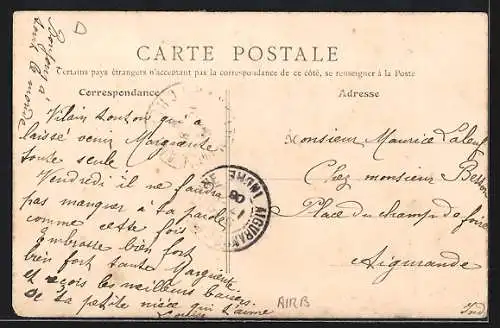 Bonjour à
tout le monde
CARTE POSTALE
Certains pays étrangers n'acceptant pas la correspondance de ce côté, se renseigner à la Poste
Correspondance
Adresse
Vilain tonton qui a
laissé venir Marguerite
toute seule
Vendredi il ne faudra
pas manquer à ta parole
comme cette fois
Embrasse bien fort
bien fort tante Marguerite
et reçois les meilleurs baisers
De ta petite nièce qui t'aime
Louise
Monsieur Maurice Laleuf
Chez monsieur
Place du champ de foire
Aigurande
Ind
AIGURANDE
INDRE
AIRB